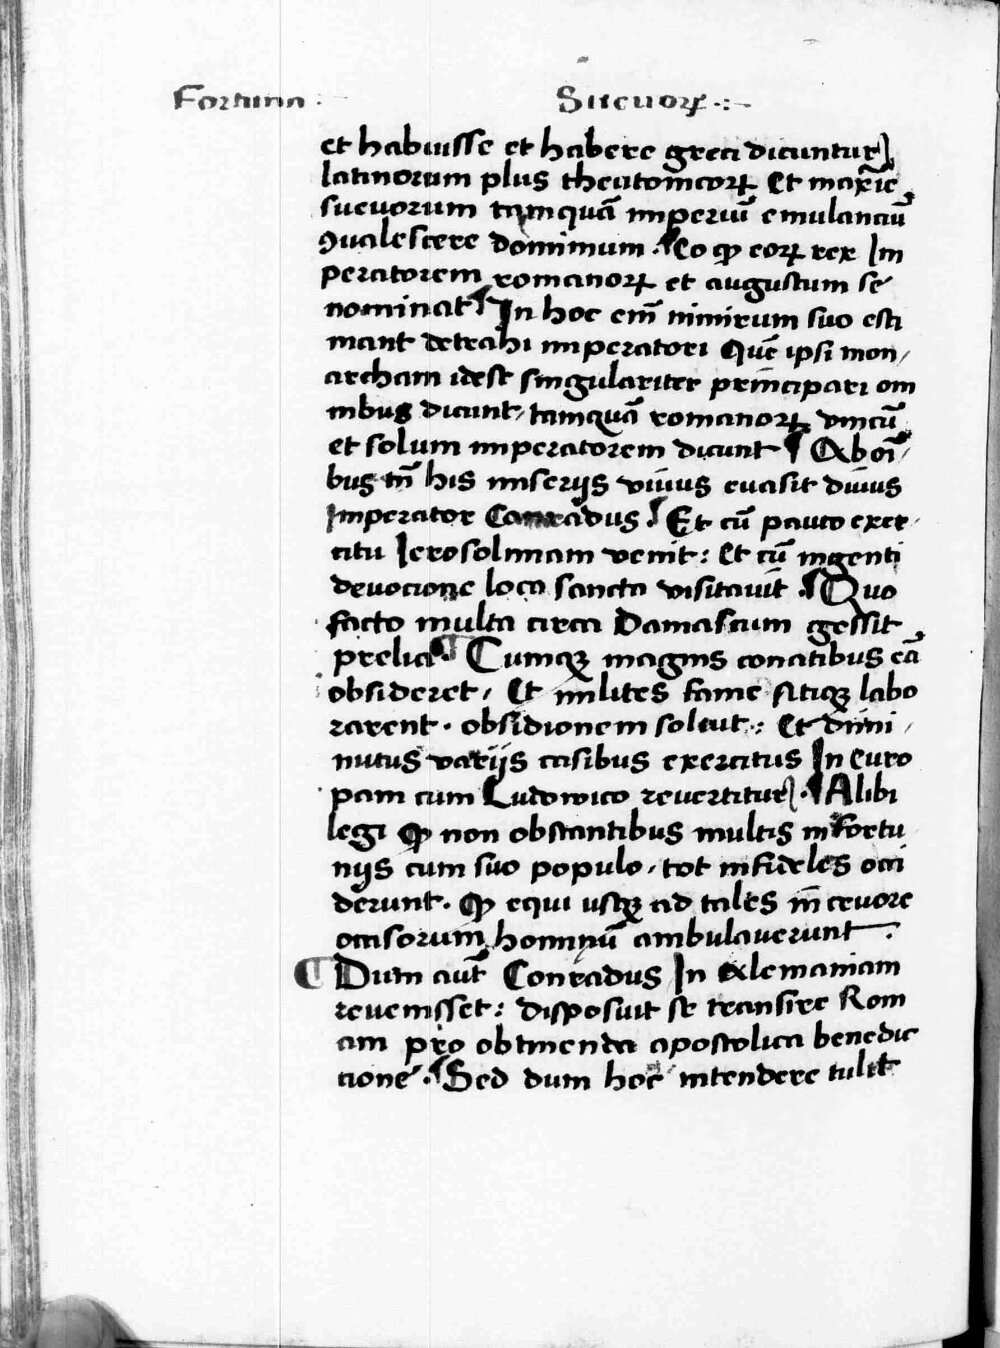 Fortuna · Sueuoꝝ .:~
et habuisse et habere greci dicuntur
latinorum plus theutonicoꝝ Et maxīe
sueuorum tamquā imperiū emulanciū
ꝯualescere dominium · Eo ꝙ eoꝝ rex Im
peratorem romanoꝝ et augustum se
nominat In hoc em̄ nimirum suo esti
mant detrahi imperatori Quē ipsi mon/
archam idest singulariter principari om
nibus dicunt, tamquā romanoꝝ vnicū
et solum imperatorem dicunt ¶ Ab oī/
bus tn̄ his miserijs viuus euasit diuus
Imperator Conradus · Et cū pauco exer/
citu Ierosolimam venit : Et cū ingenti
deuocione loca sancta visitauit · Quo
facto multa circa Damascum gessit
prelia · Cumqꝫ magnis conatibus eā
obsideret / Et milites fame sitiqꝫ labo
rarent · obsidionem soluit : Et dimi/
nutus varijs casibus exercitus In euro
pam cum Ludowico reuertitur · ¶ Alibi
legi ꝙ non obstantibus multis infortu
nijs cum suo populo / tot infideles occi
derunt · ꝙ equi usqꝫ ad tales in̄ cruore
occisorum hominū ambulauerunt :
¶ Dum aūt Conradus In Alemaniam
reuenisset : disposuit se transire Rom
am pro obtinenda apostolica benedic
cione · Sed dum hoc intendere tulit